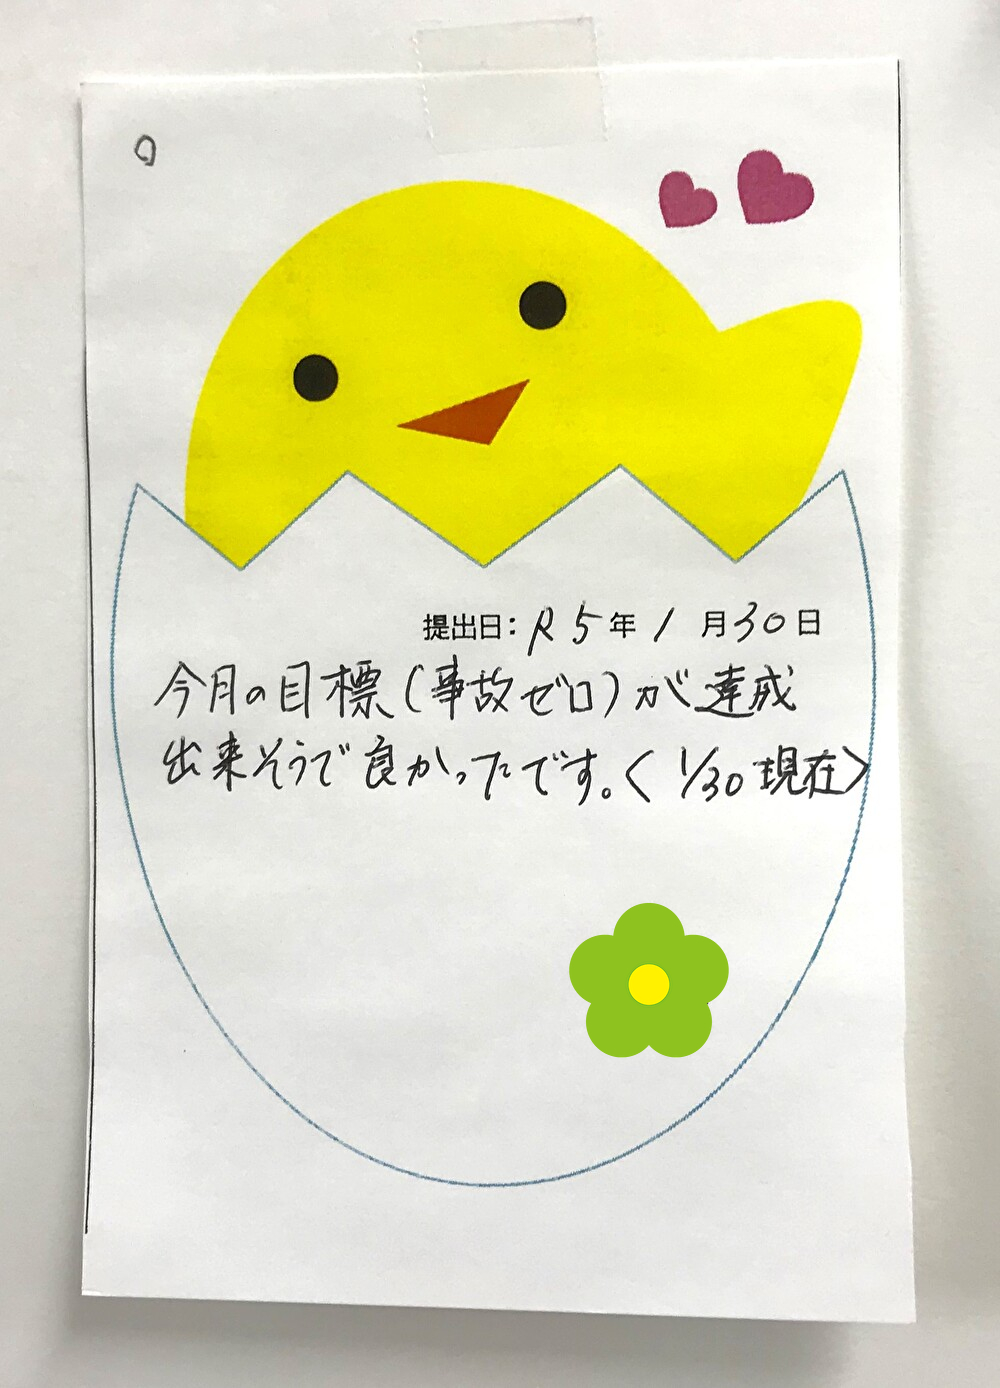 提出日: R5年1月30日
今月の目標(事故ゼロ)が達成
出来そうで良かったです。〈1/30現在〉